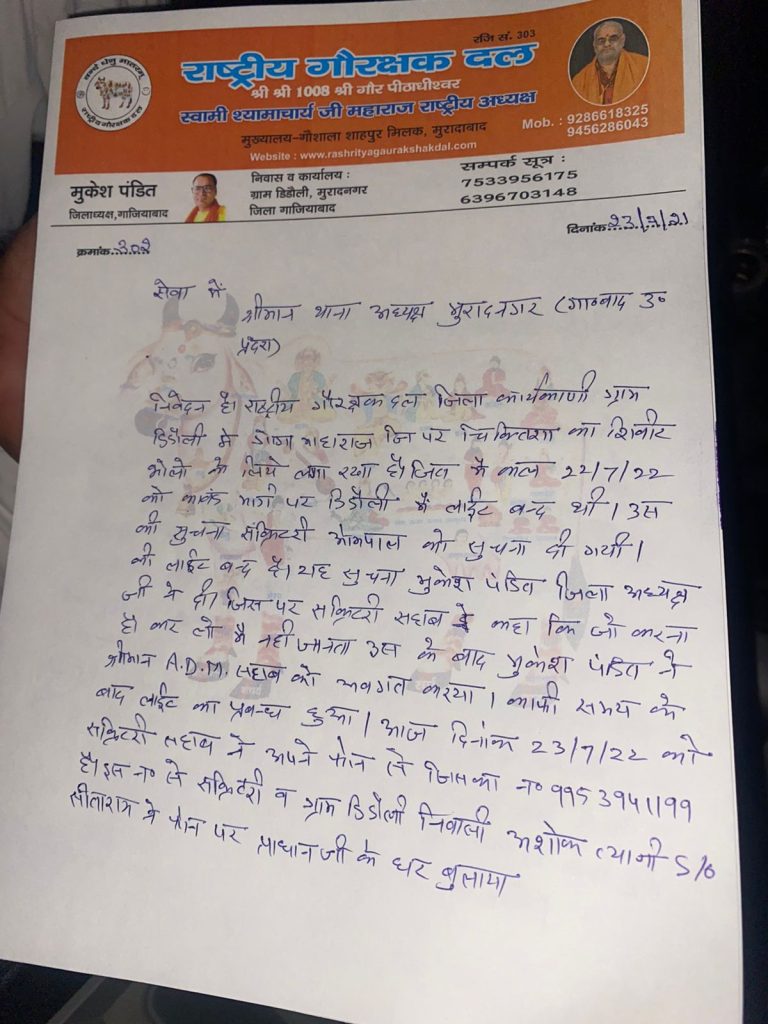 रजि सं. 303
वन्दे धेनु मातरम्
राष्ट्रीय गौरक्षक दल
राष्ट्रीय गौरक्षक दल
श्री श्री 1008 श्री गौर पीठाधीश्वर
स्वामी श्यामाचार्य जी महाराज राष्ट्रीय अध्यक्ष
मुख्यालय-गौशाला शाहपुर मिलक, मुरादाबाद
Website : www.rashrityagaurakshakdal.com
Mob. : 9286618325
9456286043
मुकेश पंडित
जिलाध्यक्ष,गाजियाबाद
निवास व कार्यालय :
ग्राम डिडौली, मुरादनगर
जिला गाजियाबाद
सम्पर्क सूत्र :
7533956175
6396703148
क्रमांक..302
दिनांक.23/7/21
सेवा में
श्रीमान थाना अध्यक्ष मुरादनगर (गा०बाद उ०
प्रदेश)
निवेदन है। राष्ट्रीय गौरक्षक दल जिला कार्यकाणी ग्राम
डिडौली मे गोगा माहाराज जि पर चिकित्सा का शिवीर
भोलो के लिये लगा रखा है। जिस मै कल 22/7/22
को कावड मार्ग पर डिडौली मै लाईट बन्द थी। उस
की सुचना सक्रिटरी ओमपाल को सुचना दी गयी।
की लाईट बन्द है। यह सुचना मुकेश पंडित जिला अध्यक्ष
जी ने दी। जिस पर सक्रिटरी सहाब ने कहा कि जो करना
है। कर लो मै नही जानता उस के बाद मुकेश पंडित ने
श्रीमान A.D.M. सहाब को अवगत कराया। काफी समय के
बाद लाईट का प्रबन्ध हुआ। आज दिनांक 23/7/22 को
सक्रिटरी सहाब ने अपने फोन से जिसका न० 9953941199
है। इस न० से सक्रिटरी व ग्राम डिडौली निवासी अशोक त्यागी S/o
सीताराम ने फोन पर प्राधान जी के घर बुलाया